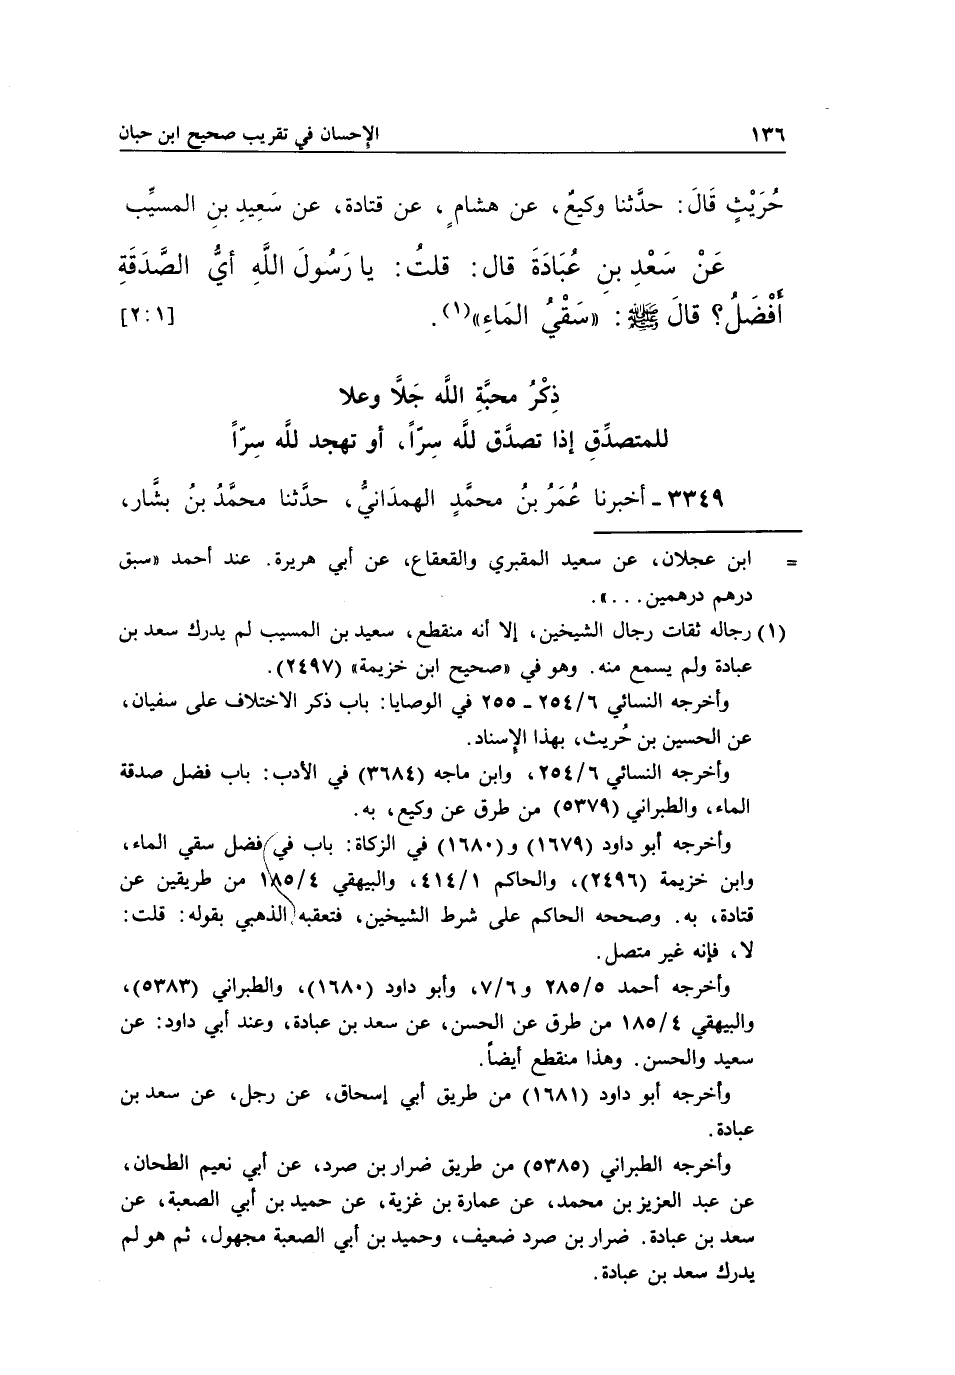 ١٣٦ الإحسان في تقريب صحيح ابن حبان
حُرَيْثٍ قَالَ: حدَّثنا وكيعٌ، عن هشامٍ، عن قتادة، عن سَعِيدِ بنِ المسيِّب
عَنْ سَعْدِ بنِ عُبَادَةَ قال: قلتُ: يا رَسُولَ اللَّهِ أيُّ الصَّدَقَةِ
أَفْضَلُ؟ قالَ ﷺ: «سَقْيُ المَاءِ»(١). [٢:١]
ذِكْرُ محبَّةِ اللَّه جَلَّا وعلا
للمتصدِّقِ إذا تصدَّق للَّه سِرّاً، أو تهجد للَّه سِرّاً
٣٣٤٩ - أخبرنا عُمَرُ بنُ محمَّدٍ الهمدَانيُّ، حدَّثنا محمَّدُ بنُ بشَّار،
= ابن عجلان، عن سعيد المقبري والقعقاع، عن أبي هريرة. عند أحمد «سبق
درهم درهمين...».
(١) رجاله ثقات رجال الشيخين، إلا أنه منقطع، سعيد بن المسيب لم يدرك سعد بن
عبادة ولم يسمع منه. وهو في «صحيح ابن خزيمة» (٢٤٩٧).
وأخرجه النسائي ٢٥٤/٦ - ٢٥٥ في الوصايا: باب ذكر الاختلاف على سفيان،
عن الحسين بن حُريث، بهذا الإِسناد.
وأخرجه النسائي ٢٥٤/٦، وابن ماجه (٣٦٨٤) في الأدب: باب فضل صدقة
الماء، والطبراني (٥٣٧٩) من طرق عن وكيع، به.
وأخرجه أبو داود (١٦٧٩) و(١٦٨٠) في الزكاة: باب في فضل سقي الماء،
وابن خزيمة (٢٤٩٦)، والحاكم ٤١٤/١، والبيهقي ١٨٥/٤ من طريقين عن
قتادة، به. وصححه الحاكم على شرط الشيخين، فتعقبه الذهبي بقوله: قلت:
لا، فإنه غير متصل.
وأخرجه أحمد ٢٨٥/٥ و٧/٦، وأبو داود (١٦٨٠)، والطبراني (٥٣٨٣)،
والبيهقي ١٨٥/٤ من طرق عن الحسن، عن سعد بن عبادة، وعند أبي داود: عن
سعيد والحسن. وهذا منقطع أيضاً.
وأخرجه أبو داود (١٦٨١) من طريق أبي إسحاق، عن رجل، عن سعد بن
عبادة.
وأخرجه الطبراني (٥٣٨٥) من طريق ضرار بن صرد، عن أبي نعيم الطحان،
عن عبد العزيز بن محمد، عن عمارة بن غزية، عن حميد بن أبي الصعبة، عن
سعد بن عبادة. ضرار بن صرد ضعيف، وحميد بن أبي الصعبة مجهول، ثم هو لم
يدرك سعد بن عبادة.